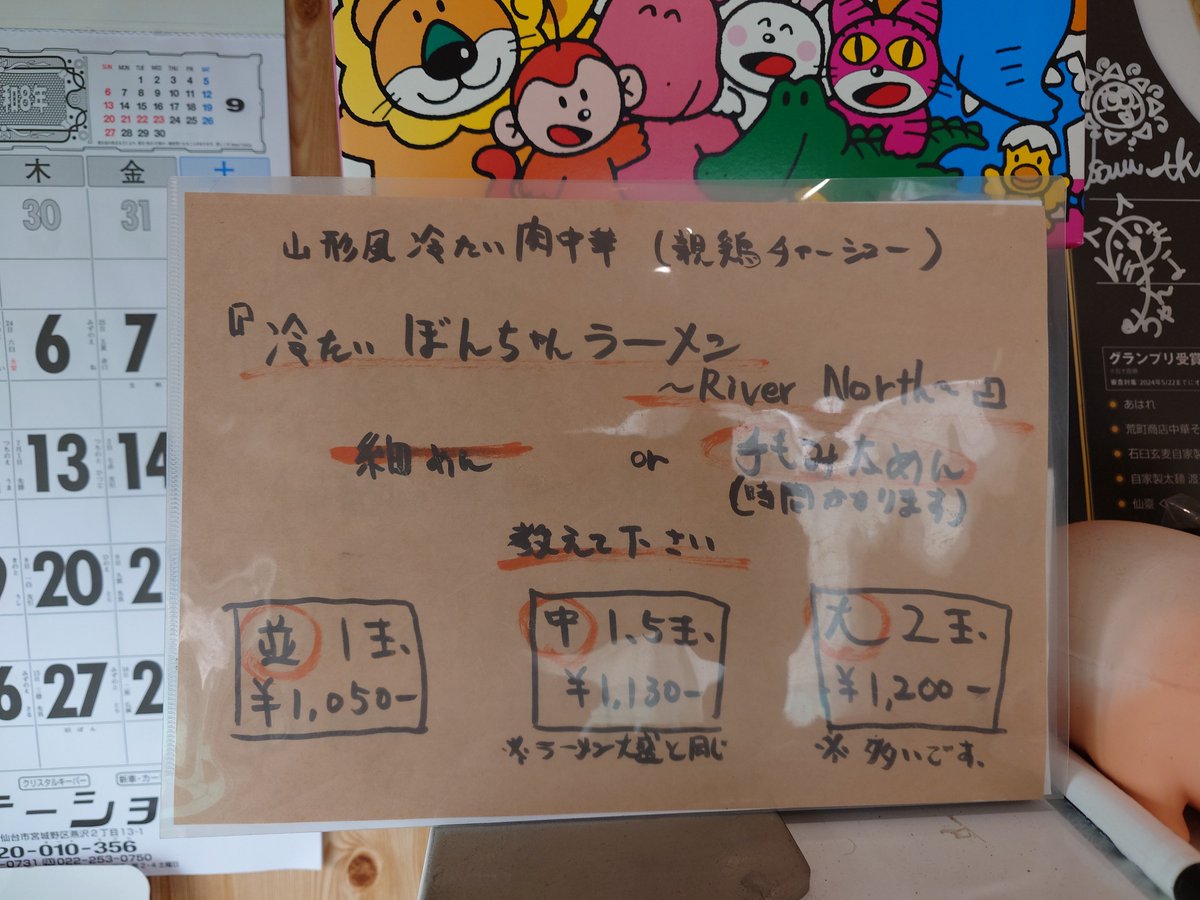 山形風 冷たい肉中華 (親鶏チャーシュー)
『冷たい ぼんちゃんラーメン
~River North~』
細めん or 手もみ太めん
(時間かかります)
教えて下さい
並 1玉、
¥1,050-
中 1.5玉、
¥1,130-
※ラーメン大盛と同じ
大 2玉、
¥1,200-
※ 多いです。
8年
SUN MON TUE WED THU FRI SAT
1 2 3 4 5
6 7 8 9 10 11 12
13 14 15 16 17 18 19
20 21 22 23 24 25 26
27 28 29 30
9
木 金 土
30 31
6 7
13 14
20 2
27 2
クリスタルキーパー
新車・カー
ーショ
仙台市宮城野区燕沢2丁目13-1
20-010-356
-0731 022-253-0750
グランプリ受賞
審査対象 2024年5/22までに
あはれ
荒町商店中華そ
石臼玄麦自家製
自家製太麺 渡
仙臺 く